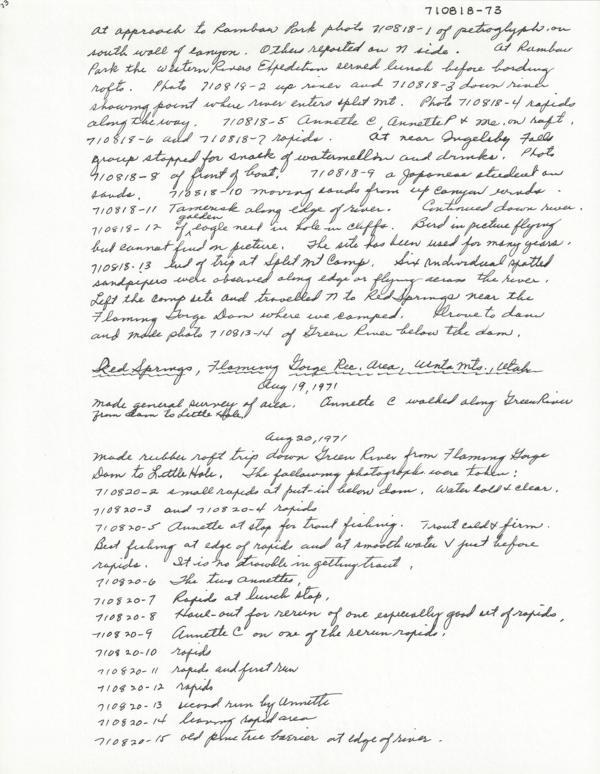 710818-73
23
At approach to Rainbow Park photo 710818-1 of petroglyphs on
south wall of canyon. Others reported on N side. At Rainbow
Park the Western Rivers Expedition served lunch before boarding
rafts. Photo 710818-2 up river and 710818-3 down river
showing point where river enters Split Mt. Photo 710818-4 rapids
along the way. 710818-5 Annette C, Annette P & me on raft.
710818-6 and 710818-7 rapids. At near Ingelsby Falls
group stopped for snack of watermellon and drinks. Photo
710818-8 of front of boat. 710818-9 a Japanese student on
sands. 710818-10 moving sands from up canyon winds.
710818-11 Tamerisk along edge of river. Continued down river.
710818-12 of golden eagle nest in hole in cliffs. Bird in picture flying
but cannot find in picture. The site has been used for many years.
710818-13 End of trip at Split Mt Camp. Six individual spotted
sandpipers were observed along edge or flying across the river.
Left the camp site and travelled N to Red Springs near the
Flaming Gorge Dam where we camped. Drove to dam
and made photo 710813-14 of Green River below the dam.
Red Springs, Flaming Gorge Rec. Area, Uinta Mts., Utah
Aug 19, 1971
Made general survey of area. Annette C walked along Green River
from dam to Little Hole.
Aug 20, 1971
Made rubber raft trip down Green River from Flaming Gorge
Dam to Little Hole. The following photographs were taken:
710820-2 small rapids at put-in below dam. Water cold & clear.
710820-3 and 710820-4 rapids
710820-5 Annette at stop for trout fishing. Trout cold & firm.
Best fishing at edge of rapids and at smooth water just before
rapids. It is no trouble in getting trout.
710820-6 The two Annettes,
710820-7 Rapids at lunch stop,
710820-8 Haul-out for rerun of one especially good set of rapids,
710820-9 Annette C on one of the rerun rapids.
710820-10 rapids
710820-11 rapids and first run
710820-12 rapids
710820-13 second run by Annette
710820-14 leaving rapid area
710820-15 old pine tree barrier at edge of river.